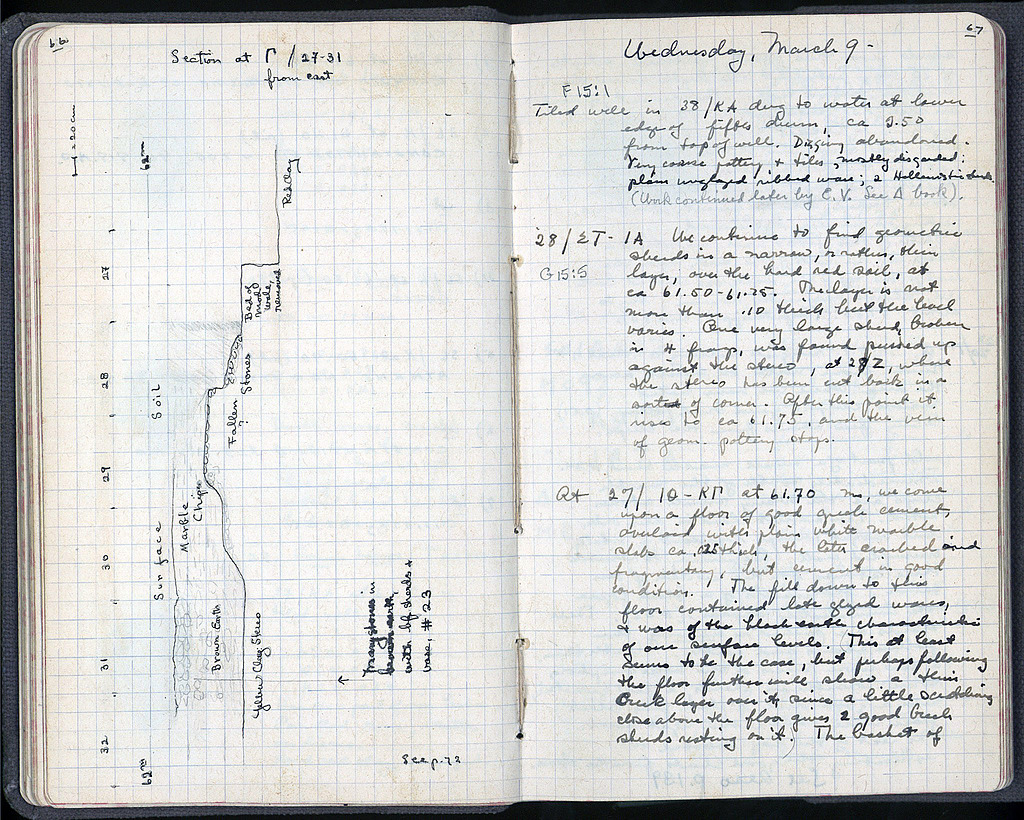 66
Section at Γ / 27-31
from east
1 = 20 cm
62m
Red Clay
27
Bed of
mod.
wall,
removed
28
Soil
Fallen Stones
29
Marble
Chips
Surface
30
Brown Earth
31
Yellow Clay Stereo
32
62m
many stones in
brown earth,
with bf sherds &
vase, #23
See p. 72
67
Wednesday, March 9 -
F 15:1
Tiled well in 38/KA dug to water at lower
edge of fifth drum, ca 3.50
from top of well. Digging abandoned.
Very coarse pottery & tiles, mostly disgarded;
plain unglazed ribbed ware; 2 Hellenistic sherds.
(Work continued later by E.V. See Δ book).
28/ΣT - 1A We continue to find geometric
G15:5
sherds in a narrow, or rather, thin
layer, over the hard red soil, at
ca 61.50-61.25. The layer is not
more than .10 thick but the level
varies. One very large sherd, broken
in 4 frags, was found pushed up
against the stereo, at 28/Z, where
the stereo has been cut back in a
sort of corner. After this point it
rises to ca 61.75, and the vein
of geom. pottery stops.
At 27/ 1Θ-KΓ at 61.70 m, we come
upon a floor of good greek cement,
overlaid with plain white marble
slabs ca .025 thick, the later cracked and
fragmentary, but cement in good
condition. The fill down to this
floor contained late glzed wares,
& was of the black earth characteristic
of our surface levels. (This at least
seems to be the case, but perhaps following
the floor further will show a thin
Greek layer over it, since a little scratching
close above the floor gives 2 good Greek
sherds resting on it.) The basket of